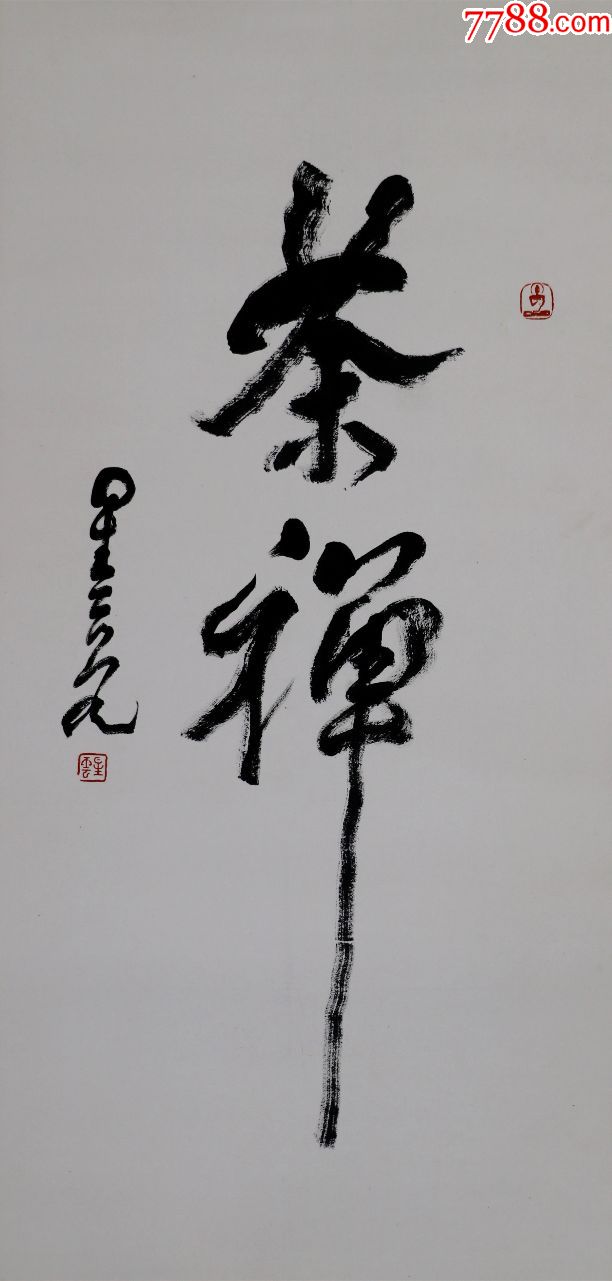 7788.com
茶禪
星雲